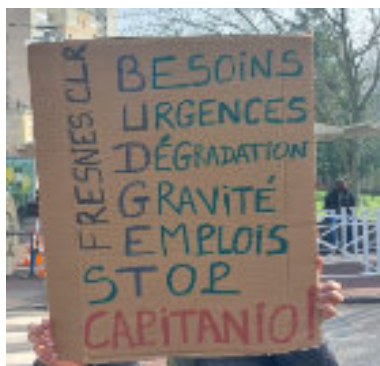 FRESNES CLR
BESOINS
URGENCES
DÉGRADATION
GRAVITÉ
EMPLOIS
STOP
CAPITANIO!